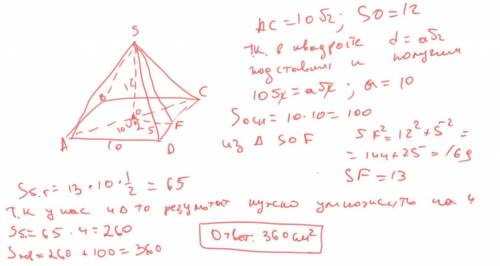 AC = 10√2; SO = 12
т.к. в квадрате d = a√2
подставим и получим
10√2 = a√2; a = 10
Sосн = 10·10 = 100
из Δ SOF
SF² = 12² + 5² =
= 144 + 25 = 169
SF = 13
S
12
B
C
O
10√2
5
F
A
10
D
Sб.г = 13·10·1/2 = 65
Т.к у нас 4Δ то результат нужно умножить на 4
Sб = 65·4 = 260
Sпол = 260 + 100 = 360
Ответ. 360 см²